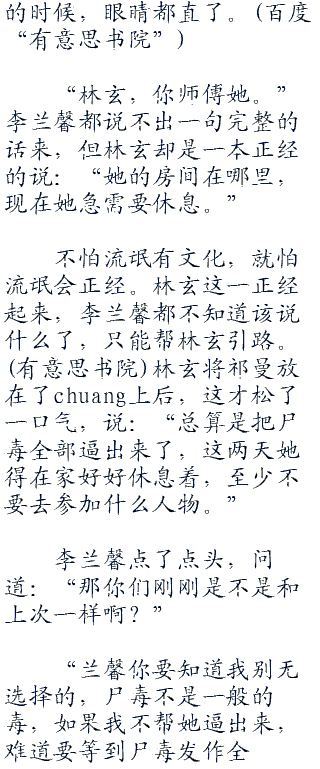 的时候，眼睛都直了。(百度
“有意思书院”)
“林玄，你师傅她。”
李兰馨都说不出一句完整的
话来，但林玄却是一本正经
的说：“她的房间在哪里，
现在她急需要休息。”
不怕流氓有文化，就怕
流氓会正经。林玄这一正经
起来，李兰馨都不知道该说
什么了，只能帮林玄引路。
(有意思书院)林玄将祁曼放
在了chuang上后，这才松了
一口气，说：“总算是把尸
毒全部逼出来了，这两天她
得在家好好休息着，至少不
要去参加什么人物。”
李兰馨点了点头，问
道：“那你们刚刚是不是和
上次一样啊？”
“兰馨你要知道我别无
选择的，尸毒不是一般的
毒，如果我不帮她逼出来，
难道要等到尸毒发作全